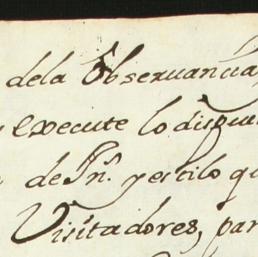 dela Observancia,
y execute lo dispu
de Jn.º y estilo qu
Visitadores, par